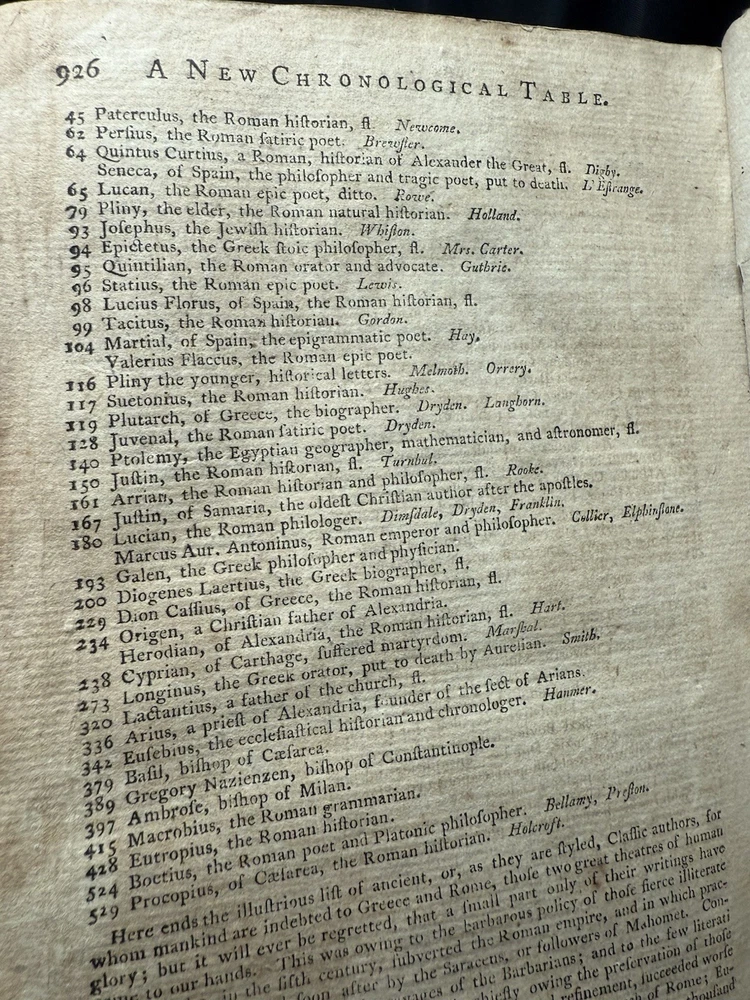 926 A NEW CHRONOLOGICAL TABLE.
45 Paterculus, the Roman hiſtorian, fl. Newcome.
62 Perſius, the Roman ſatiric poet. Brewſter.
64 Quintus Curtius, a Roman, hiſtorian of Alexander the Great, fl. Digby.
Seneca, of Spain, the philoſopher and tragic poet, put to death. L'Eſtrange.
65 Lucan, the Roman epic poet, ditto. Rowe.
79 Pliny, the elder, the Roman natural hiſtorian. Holland.
93 Joſephus, the Jewiſh hiſtorian. Whiſton.
94 Epictetus, the Greek ſtoic philoſopher, fl. Mrs. Carter.
95 Quintilian, the Roman orator and advocate. Guthrie.
96 Statius, the Roman epic poet. Lewis.
98 Lucius Florus, of Spain, the Roman hiſtorian, fl.
99 Tacitus, the Roman hiſtorian. Gordon.
104 Martial, of Spain, the epigrammatic poet. Hay.
Valerius Flaccus, the Roman epic poet.
116 Pliny the younger, hiſtorical letters. Melmoth. Orrery.
117 Suetonius, the Roman hiſtorian. Hughes.
119 Plutarch, of Greece, the biographer. Dryden. Langhorn.
128 Juvenal, the Roman ſatiric poet. Dryden.
140 Ptolemy, the Egyptian geographer, mathematician, and aſtronomer, fl.
150 Juſtin, the Roman hiſtorian, fl. Turnbul.
161 Arrian, the Roman hiſtorian and philoſopher, fl. Rooke.
167 Juſtin, of Samaria, the oldeſt Chriſtian author after the apoſtles.
180 Lucian, the Roman philologer. Dimſdale, Dryden, Franklin.
Marcus Aur. Antoninus, Roman emperor and philoſopher. Collier, Elphinſtone.
193 Galen, the Greek philoſopher and phyſician.
200 Diogenes Laertius, the Greek biographer, fl.
229 Dion Caſſius, of Greece, the Roman hiſtorian, fl.
234 Origen, a Chriſtian father of Alexandria.
Herodian, of Alexandria, the Roman hiſtorian, fl. Hart.
238 Cyprian, of Carthage, ſuffered martyrdom. Marſhal.
273 Longinus, the Greek orator, put to death by Aurelian. Smith.
320 Lactantius, a father of the church, fl.
336 Arius, a prieſt of Alexandria, founder of the ſect of Arians.
342 Euſebius, the eccleſiaſtical hiſtorian and chronologer. Hanmer.
379 Baſil, biſhop of Cæſarea.
389 Gregory Nazienzen, biſhop of Conſtantinople.
397 Ambroſe, biſhop of Milan.
415 Macrobius, the Roman grammarian.
428 Eutropius, the Roman hiſtorian.
524 Boetius, the Roman poet and Platonic philoſopher. Bellamy, Preſton.
529 Procopius, of Cæſarea, the Roman hiſtorian. Holcroft.
Here ends the illuſtrious liſt of ancient, or, as they are ſtyled, Claſſic authors, for
whom mankind are indebted to Greece and Rome, thoſe two great theatres of human
glory; but it will ever be regretted, that a ſmall part only of their writings have
to our hands. This was owing to the barbarous policy of thoſe fierce illiterate
in the fifth century, ſubverted the Roman empire, and in which prac-
ſoon after by the Saracens, or followers of Mahomet. Con-
of the Barbarians; and to the few literati
owing the preſervation of thoſe
refinement, ſucceeded worſe
of Rome; Eu-
thouſand